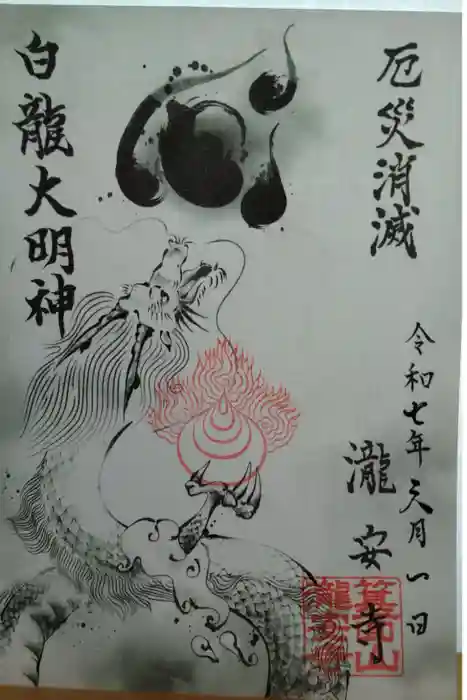 厄災消滅
令和七年六月一日
瀧安寺
白龍大明神
箕面山
瀧安寺